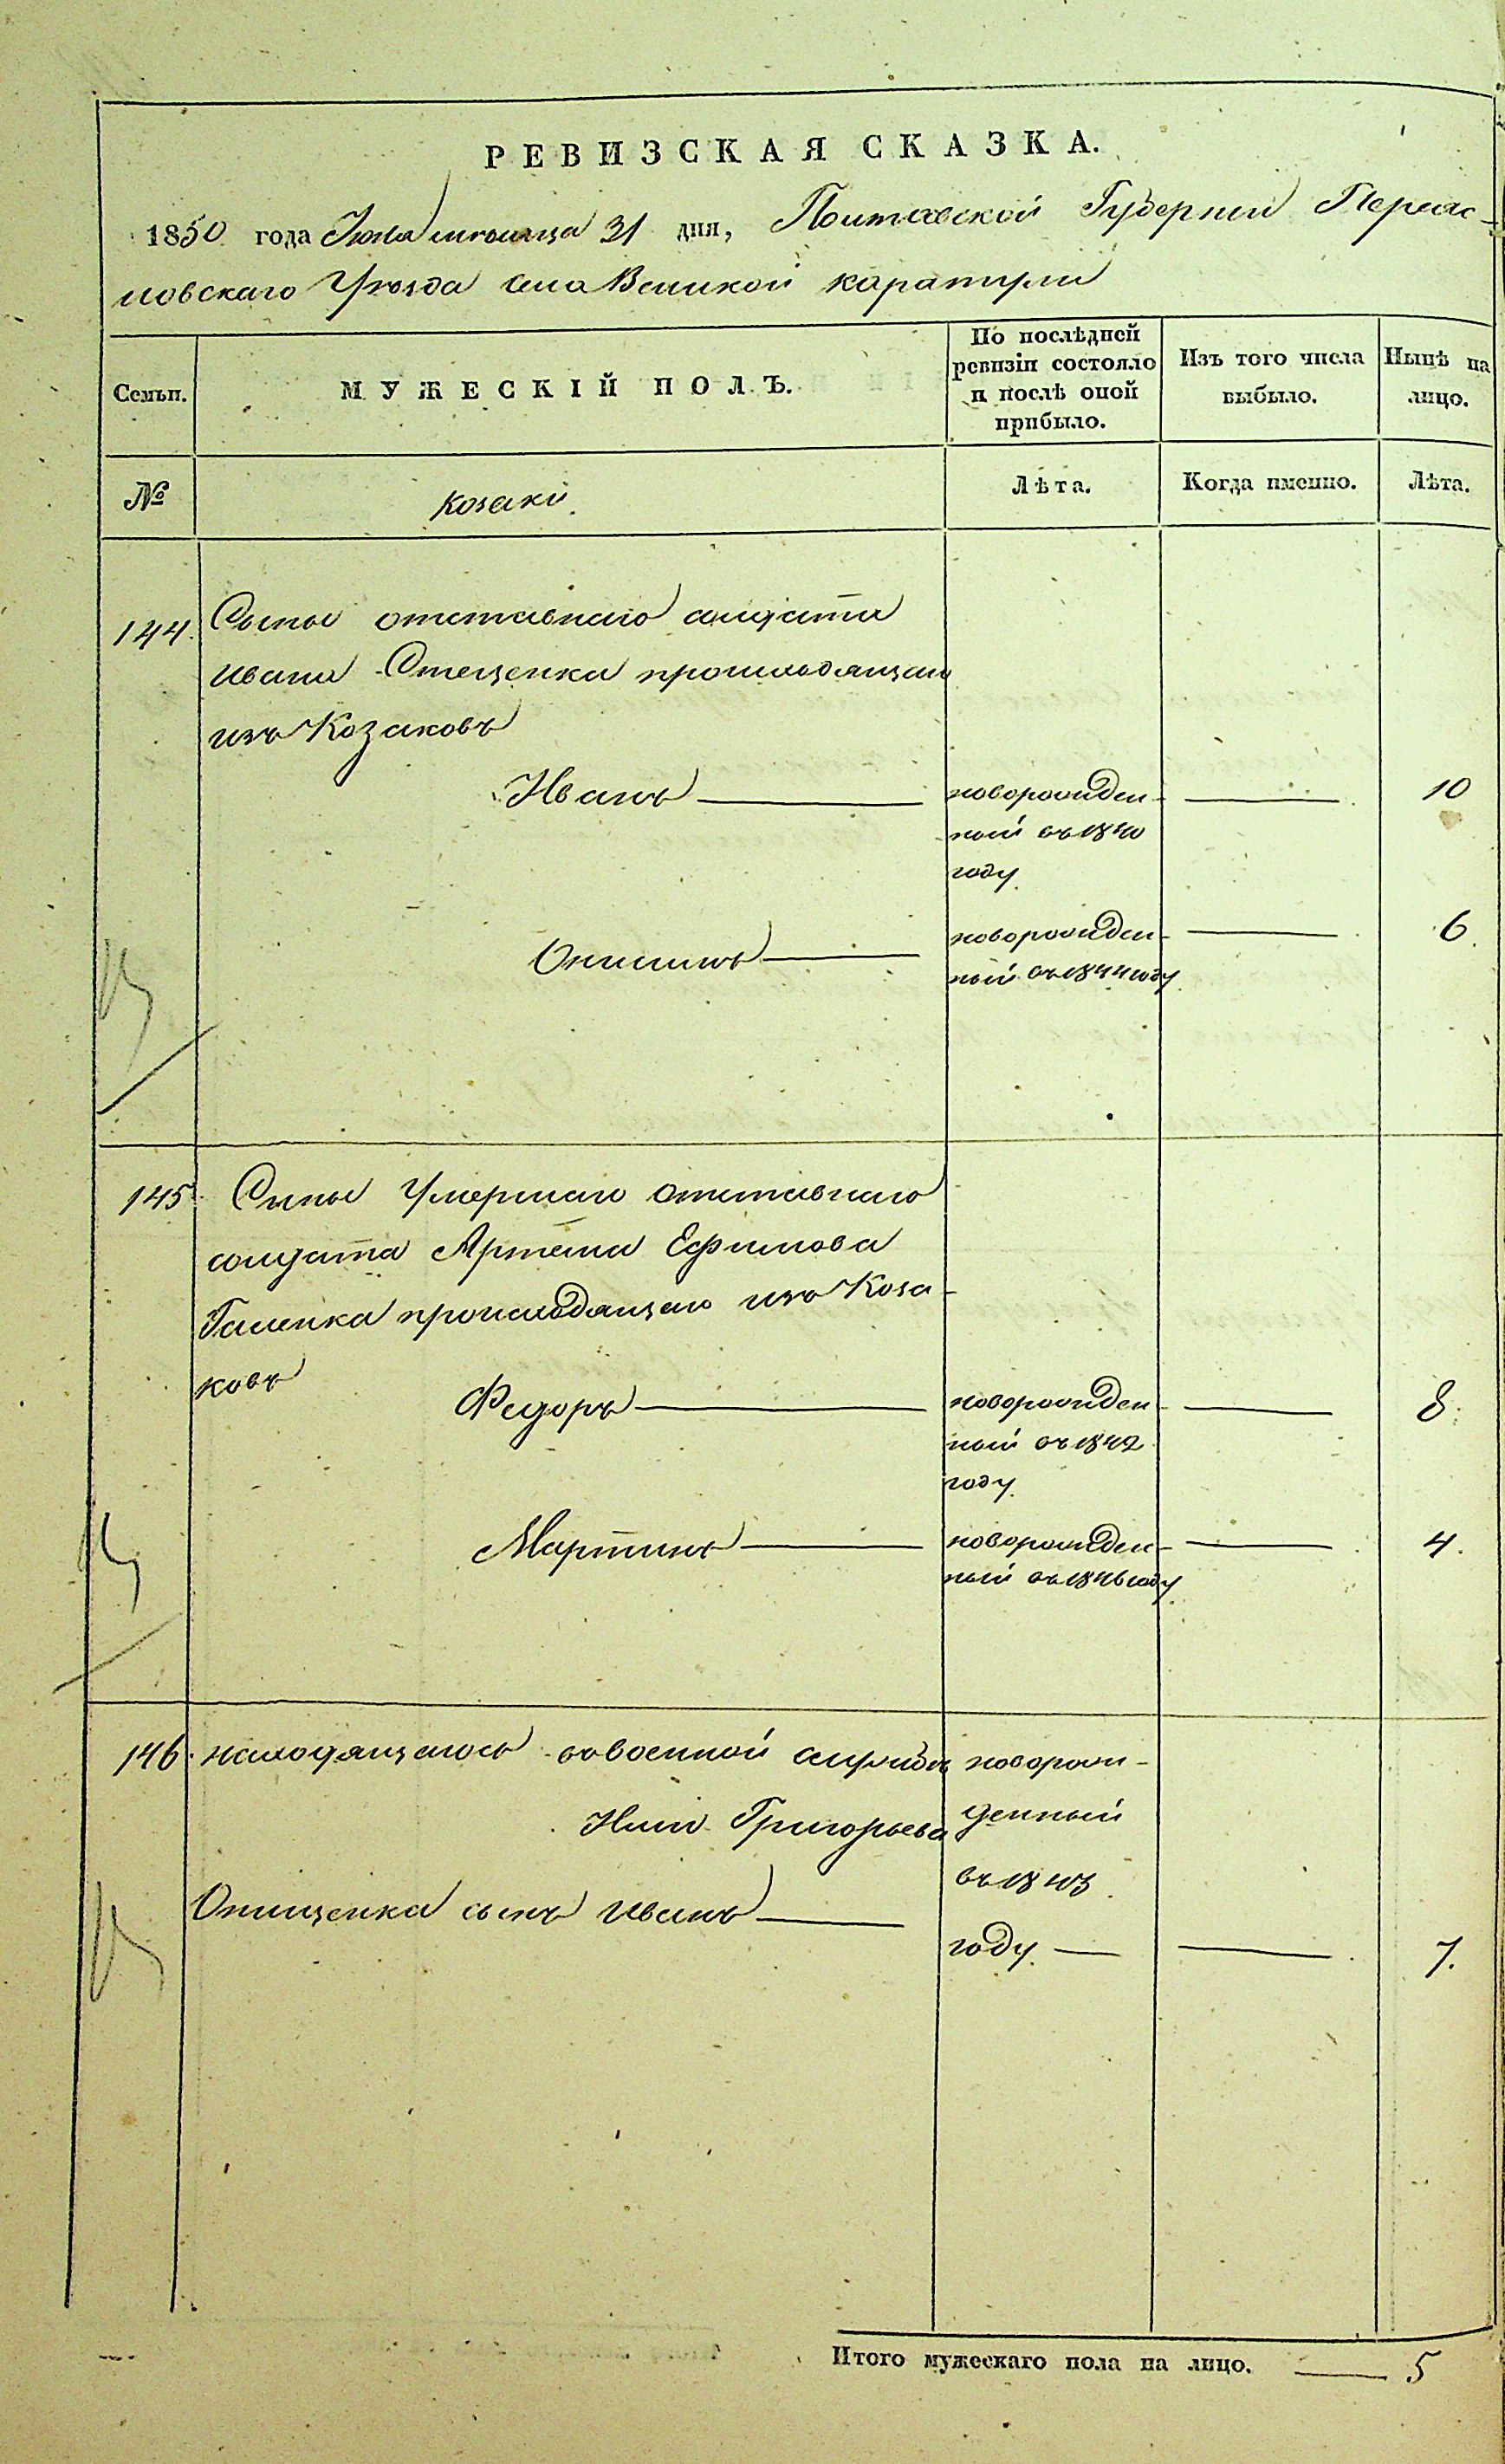 РЕВИЗСКАЯ СКАЗКА.
1850 года Июля месяца 31 дня, Полтавской Губернии Переяс-
ловскаго Уѣзда села Великой каратули
Семьи.
МУЖЕСКІЙ ПОЛЪ.
По послѣдней
ревизіи состояло
и послѣ оной
прибыло.
Изъ того числа
выбыло.
Нынѣ на
лицо.
№
козаки.
Лѣта.
Когда именно.
Лѣта.
144. Сыны отставнаго солдата
Ивана Стеценка произходящаго
изъ Козаковъ
Иванъ новорожден- 10
ный въ 1840
году.
Онисимъ новорожден- 6.
ный въ 1844 году.
145. Сыны Умершаго отставнаго
солдата Артема Ефимова
Галенка произходящаго изъ Коза-
ковъ
Федоръ новорожден- 8.
ный въ 1842
году.
Мартинъ новорожден- 4.
ный въ 1846 году.
146. находящагося въ военной службѣ новорож-
Григорьева денный
въ 1843
Онищенка сынъ Иванъ
году. 7.
Итого мужескаго пола на лицо. 5